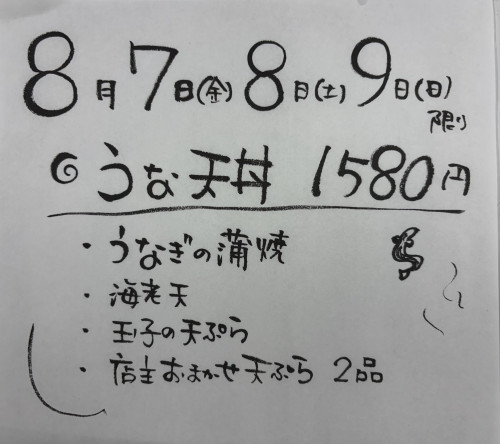 8月7日(金)8日(土)9日(日)
限り
うな天丼 1580円
・うなぎの蒲焼
・海老天
・玉子の天ぷら
・店主おまかせ天ぷら 2品